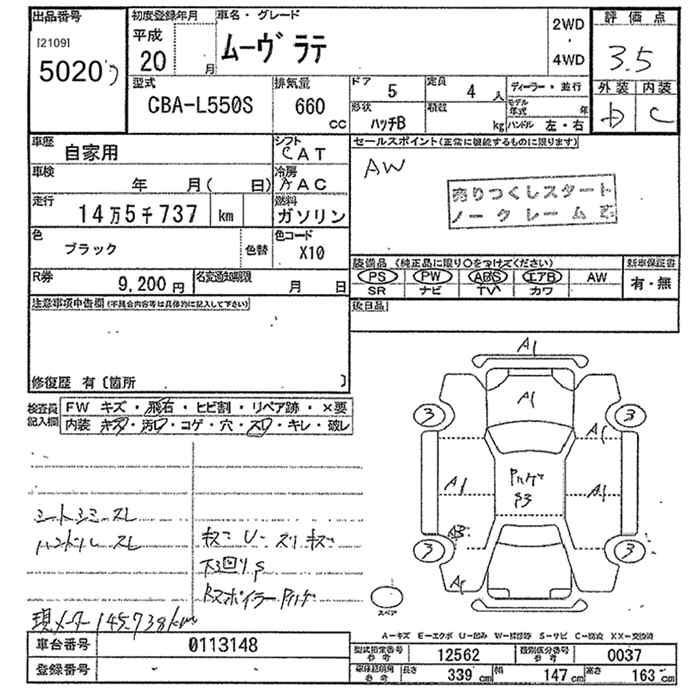 出品番号
[2109]
5020
初度登録年月
平成
20
月
車名・グレード
ムーヴ ラテ
2WD
・
4WD
評価点
3.5
外装 内装
D C
型式
CBA-L550S
排気量
660
CC
ドア
5
定員
4 人
形状
ハッチB
積数
kg
ディーラー・並行
モデル年式 年
ハンドル 左・右
車歴
自家用
シフト
CAT
車検
年 月( 日)
冷房
AAC
走行
14万5千737 km
燃料
ガソリン
色
ブラック
色替
色コード
X10
R券
9,200 円
名変通知期限
月 日
セールスポイント(正常に機能するものに限ります)
AW
売りつくしスタート
ノークレーム
装備品 (純正品に限り○をつけてください)
PS PW ABS エアB AW
SR ナビ TV カワ
新車保証書
有・無
後日品
注意事項申告欄(不具合内容等は具体的に記入して下さい)
修復歴 有 [箇所 ]
検査員
記入欄
FW キズ・飛石・ヒビ割・リペア跡・×要
内装 キズ・汚れ・コゲ・穴・スレ・キレ・破レ
シートシミ スレ
ハンドル スレ
キズ U スリキズ
下回りS
Rスポイラー
現メーター 145,738km
A1
A1
3
3
A1
A1
A1
3
3
スペア
A-キズ E-エクボ U-凹み W-補修跡 S-サビ C-腐食 XX-交換済
車台番号
0113148
登録番号
型式指定番号
参考
12562
類別区分番号
参考
0037
車体組寸用
参考
長さ
339 cm
幅
147 cm
高さ
163 cm